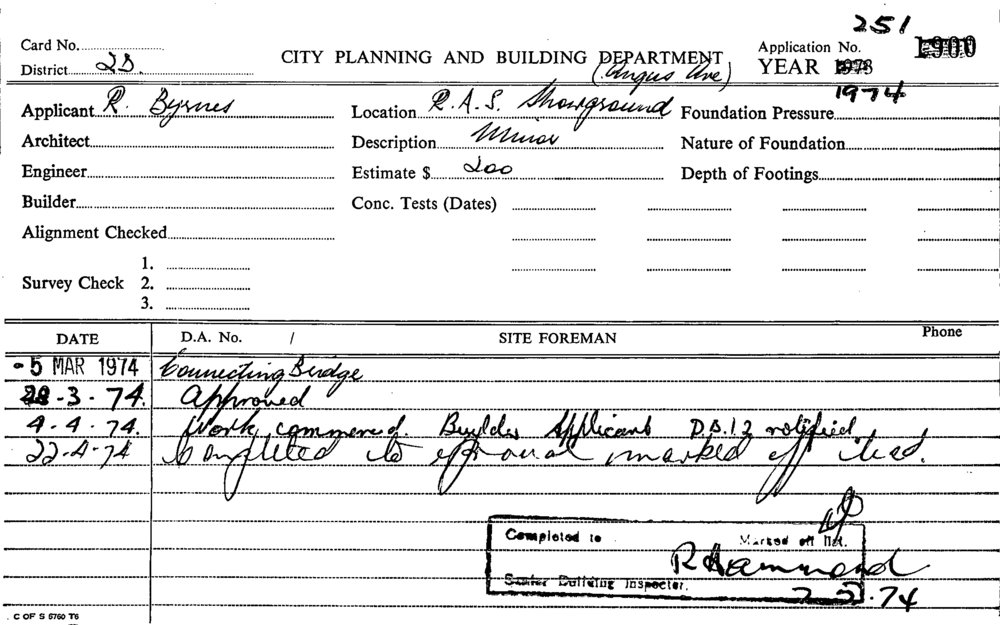 251
Card No. Application No. 1900
District 2D. CITY PLANNING AND BUILDING DEPARTMENT YEAR 1973
(Angus Ave) 1974
Applicant R. Byrnes Location R. A. S. Showground Foundation Pressure
Architect Description Minor Nature of Foundation
Engineer Estimate $ 200 Depth of Footings
Builder Conc. Tests (Dates)
Alignment Checked
1.
Survey Check 2.
3.
DATE D.A. No. / SITE FOREMAN Phone
-5 MAR 1974 Connecting Bridge
28-3-74. Approved
4-4-74. Work commenced. Builder Applicant D.S.12 notified
22-4-74 Completed to approval marked off
Completed to Marked off list.
R Hammond
Senior Building Inspector.
74
C OF S 5760 T6